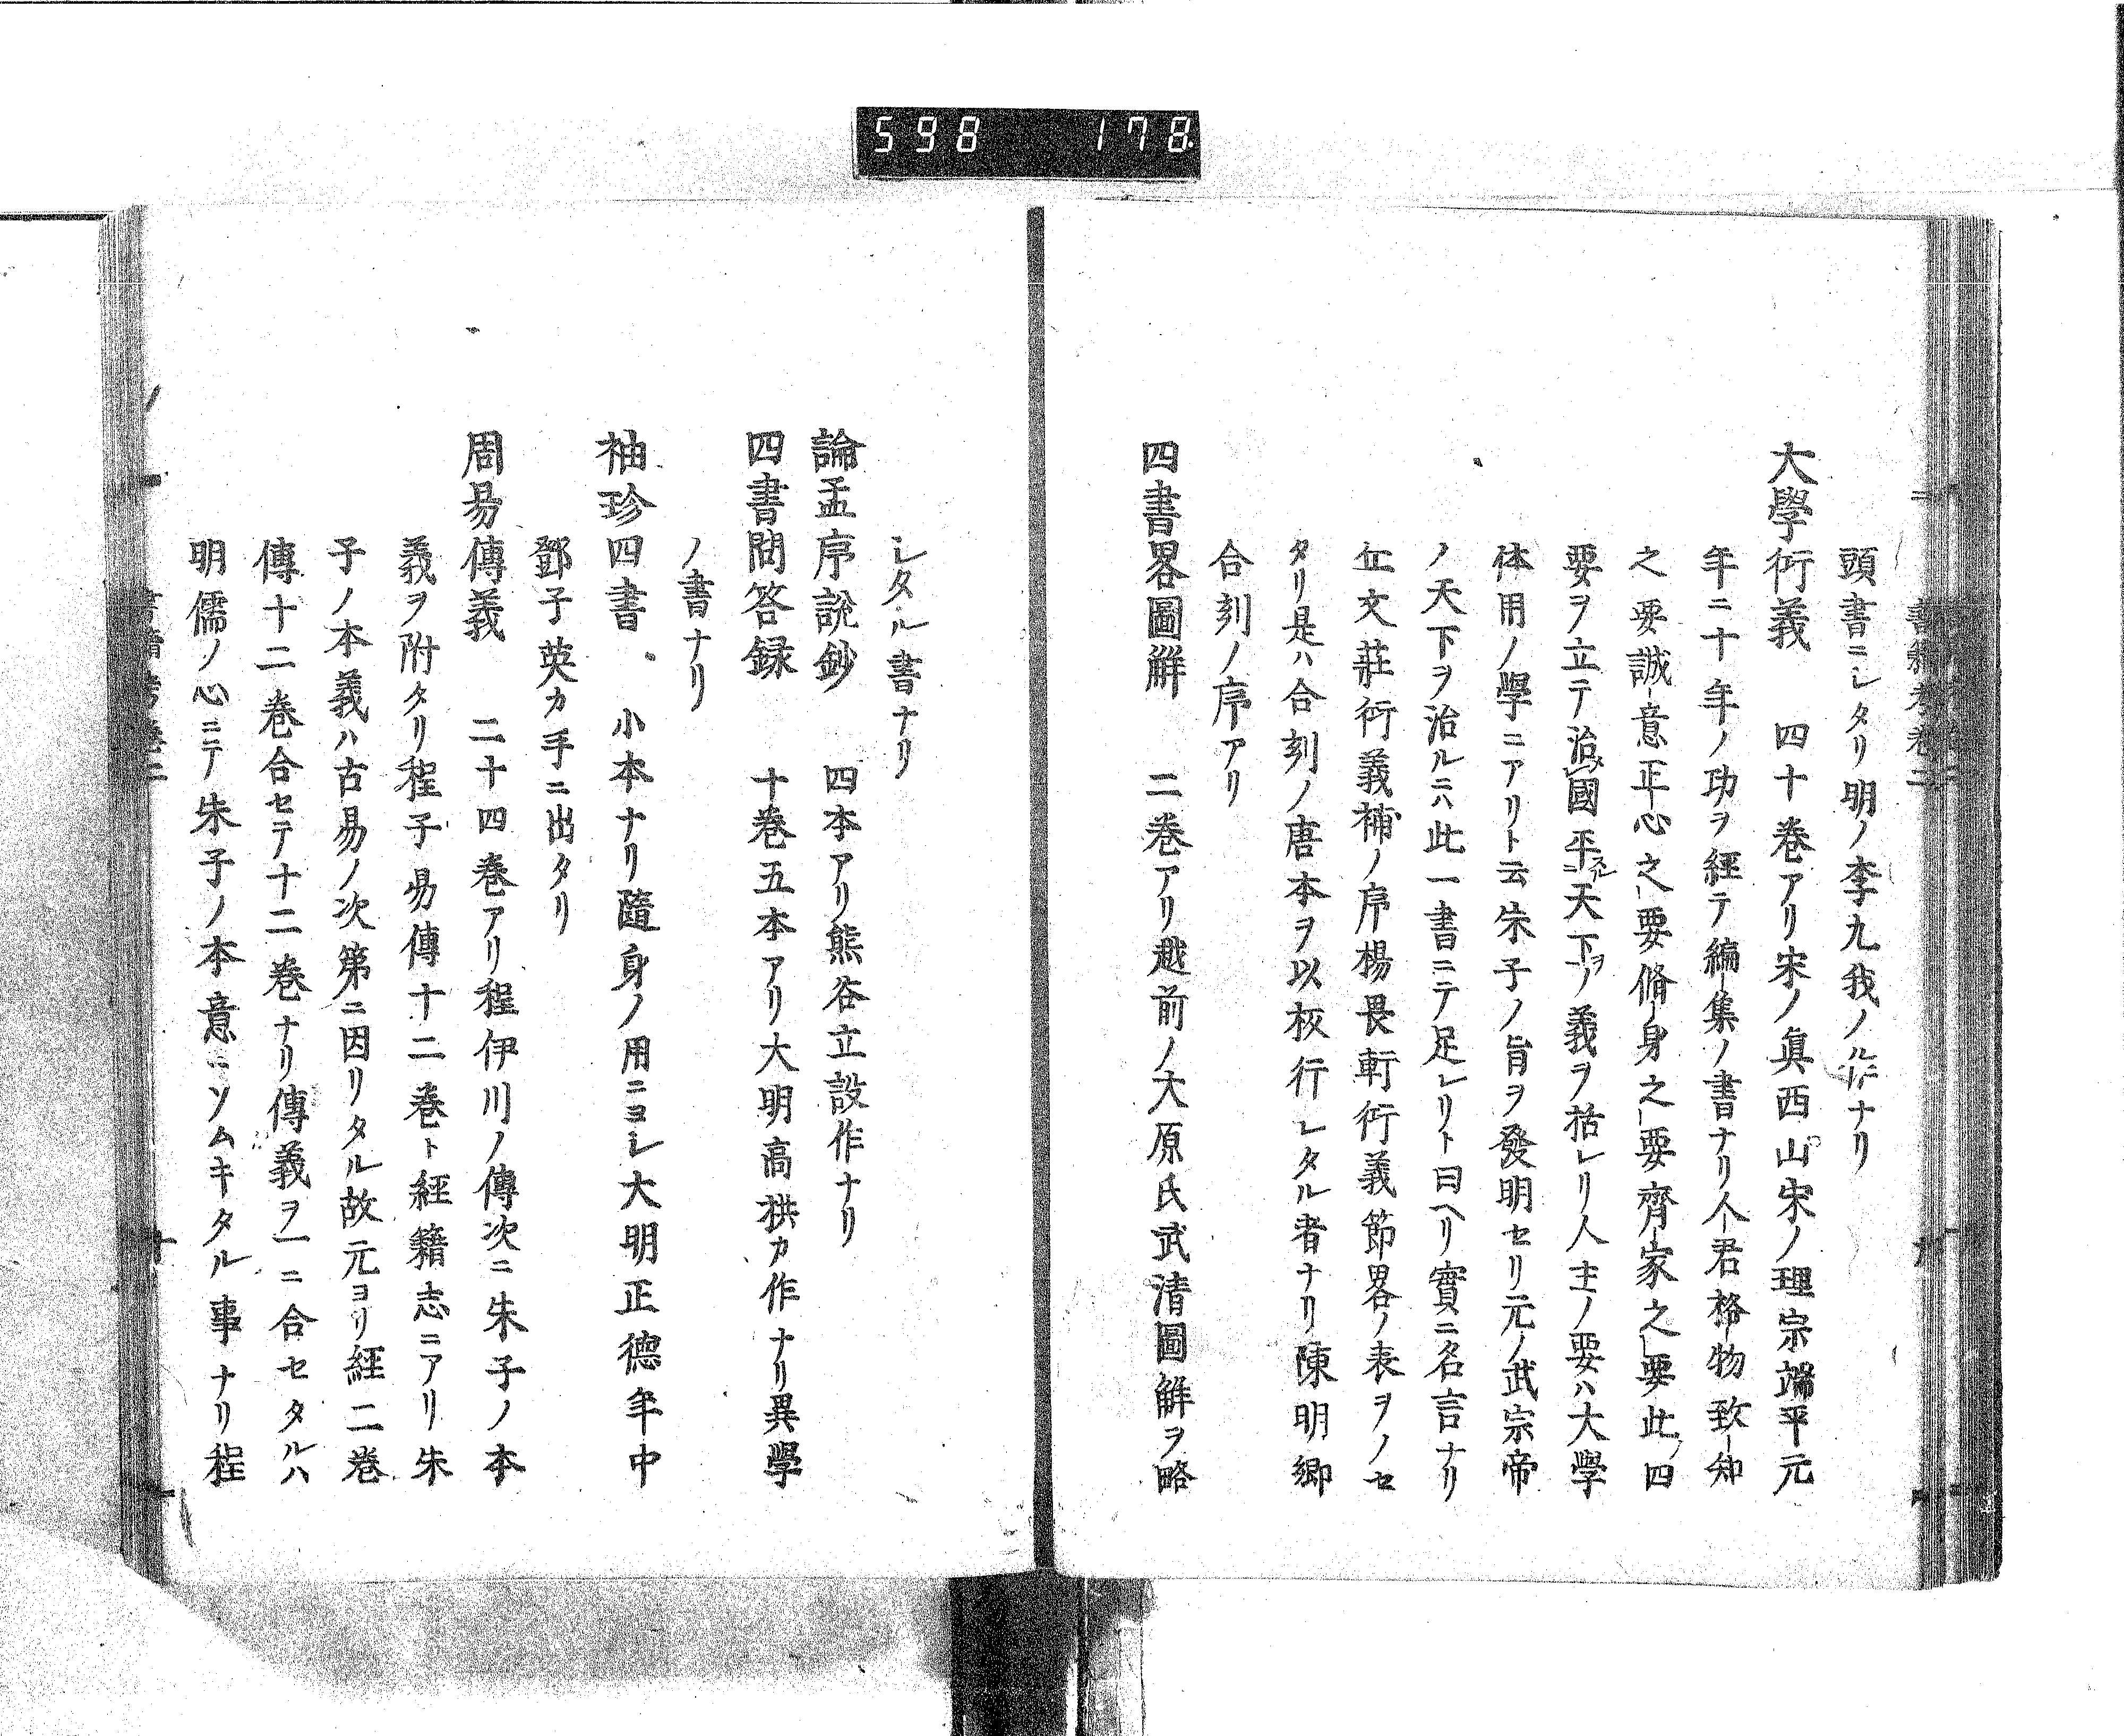 598 178
頭書ニシタリ明ノ李九我ノ作ナリ
大學衍義 四十巻アリ宋ノ眞西山宋ノ理宗端平元
年ニ十年ノ功ヲ經テ編集ノ書ナリ人君格物致知
之要誠意正心之要脩身之要齊家之要此ノ四
要ヲ立テ治國平スル天下ヲノ義ヲ括レリ人主ノ要ハ大學
体用ノ學ニアリト云朱子ノ旨ヲ發明セリ元ノ武宗帝
ノ天下ヲ治ルニハ此一書ニテ足レリト曰ヘリ實ニ名言ナリ
丘文莊衍義補ノ序楊畏軒衍義節畧ノ表ヲノセ
タリ是ハ合刻ノ唐本ヲ以板行シタル者ナリ陳明卿
合刻ノ序アリ
四書畧圖解 二巻アリ越前ノ大原氏武清圖解ヲ略
シタル書ナリ
論孟序說鈔 四本アリ熊谷立設作ナリ
四書問答録 十巻五本アリ大明高拱カ作ナリ異學
ノ書ナリ
袖珍四書 小本ナリ隨身ノ用ニヨシ大明正德年中
鄧子英カ手ニ出タリ
周易傳義 二十四巻アリ程伊川ノ傳次ニ朱子ノ本
義ヲ附タリ程子易傳十二巻ト經籍志ニアリ朱
子ノ本義ハ古易ノ次第ニ因リタル故元ヨリ經二巻
傳十二巻合セテ十二巻ナリ傳義ヲ一ニ合セタルハ
明儒ノ心ニテ朱子ノ本意ニソムキタル事ナリ程
書籍考巻二